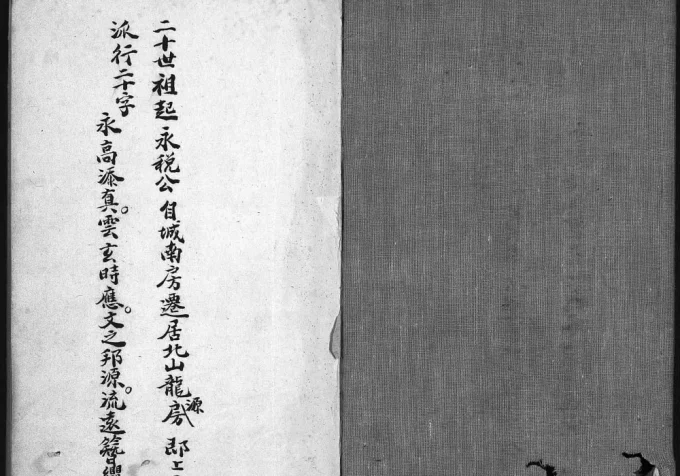 二十世祖起永税公自城南房遷居北山龍源房郎上
派行二十字
永高添真。雲玄時應。文之邦源。流遠